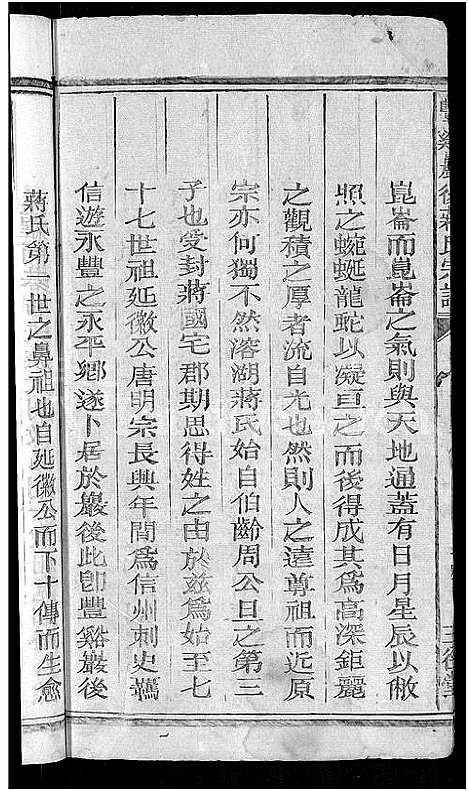 豐谿巖後蔣氏宗譜
崑崙而崑崙之氣則與天地通蓋有日月星辰以儆
照之蜿蜒龍蛇以凝亘之而後得成其為高深鉅麗
之觀積之厚者流自光也然則人之達尊祖而近原
宗亦何獨不然溶湖蔣氏始自伯齡周公旦之第三
子也爰封蔣國宅郡期思得姓之由於兹為始至七
十七世祖延徽公唐明宗長興年間為信州刺史
信遊永豐之永平鄉遂卜居於巖後此卽豐谿巖後
蔣氏第一世之鼻祖也自延徽公而下十傳而生愈